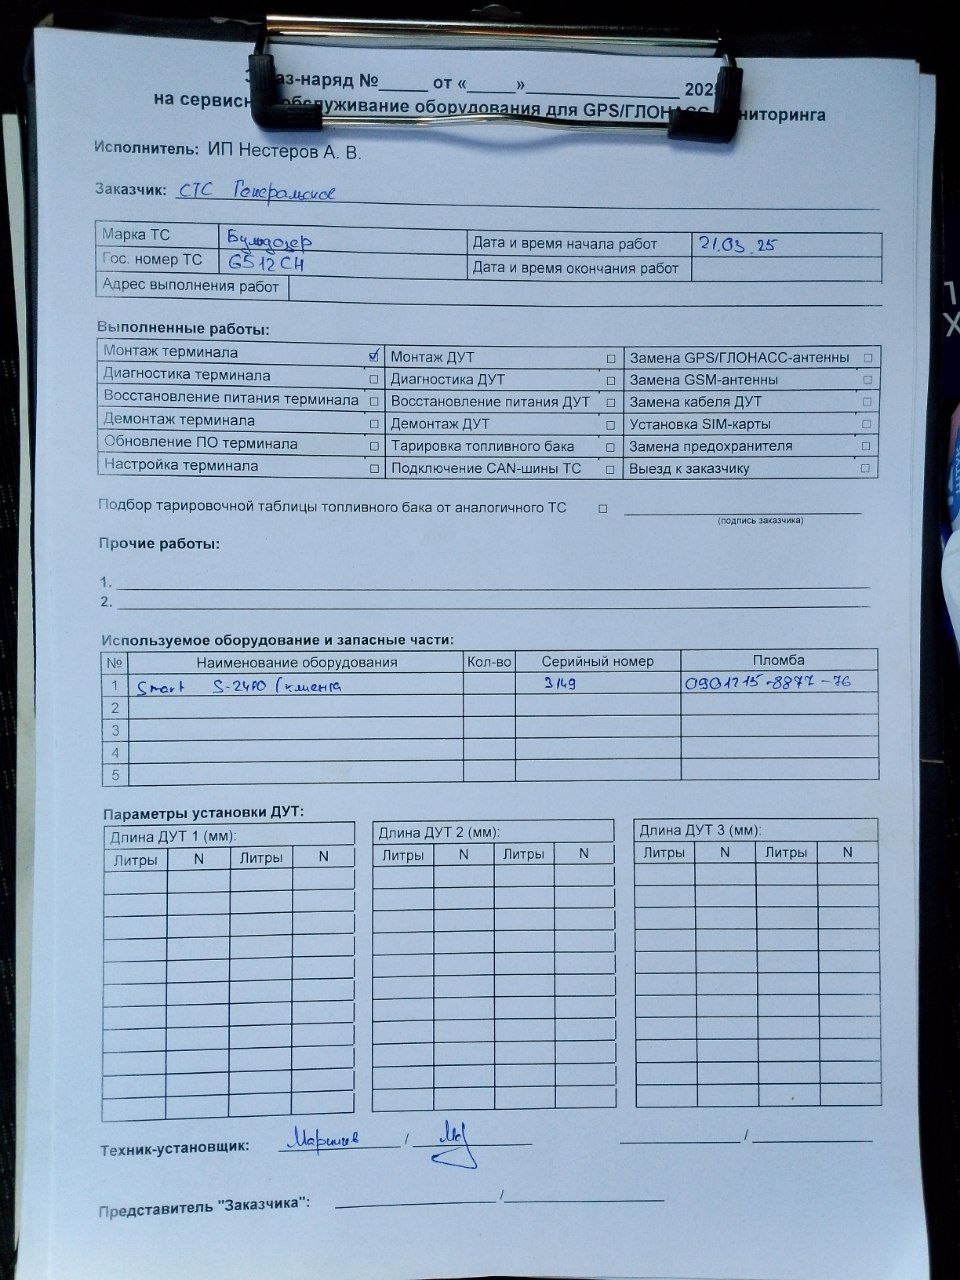 аз-наряд №_____ от «_____»________________ 202
на сервисн обслуживание оборудования для GPS/ГЛОНАСС ниторинга
Исполнитель: ИП Нестеров А. В.
Заказчик: СТС Генеральское
Марка ТС Бульдозер Дата и время начала работ 21.03.25
Гос. номер ТС 6512СН Дата и время окончания работ
Адрес выполнения работ
Выполненные работы:
Монтаж терминала ☑ Монтаж ДУТ □ Замена GPS/ГЛОНАСС-антенны □
Диагностика терминала □ Диагностика ДУТ □ Замена GSM-антенны □
Восстановление питания терминала □ Восстановление питания ДУТ □ Замена кабеля ДУТ □
Демонтаж терминала □ Демонтаж ДУТ □ Установка SIM-карты □
Обновление ПО терминала □ Тарировка топливного бака □ Замена предохранителя □
Настройка терминала □ Подключение CAN-шины ТС □ Выезд к заказчику □
Подбор тарировочной таблицы топливного бака от аналогичного ТС □
(подпись заказчика)
Прочие работы:
1.
2.
Используемое оборудование и запасные части:
№ Наименование оборудования Кол-во Серийный номер Пломба
1 Smart S-2420 (клиента 3149 0901215-8877-76
2
3
4
5
Параметры установки ДУТ:
Длина ДУТ 1 (мм): Длина ДУТ 2 (мм): Длина ДУТ 3 (мм):
Литры N Литры N Литры N Литры N Литры N Литры N
Техник-установщик: /
/
Представитель "Заказчика": /